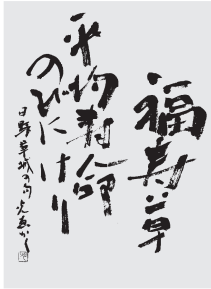 福寿草
平均寿命
のびにけり
日野草城の句